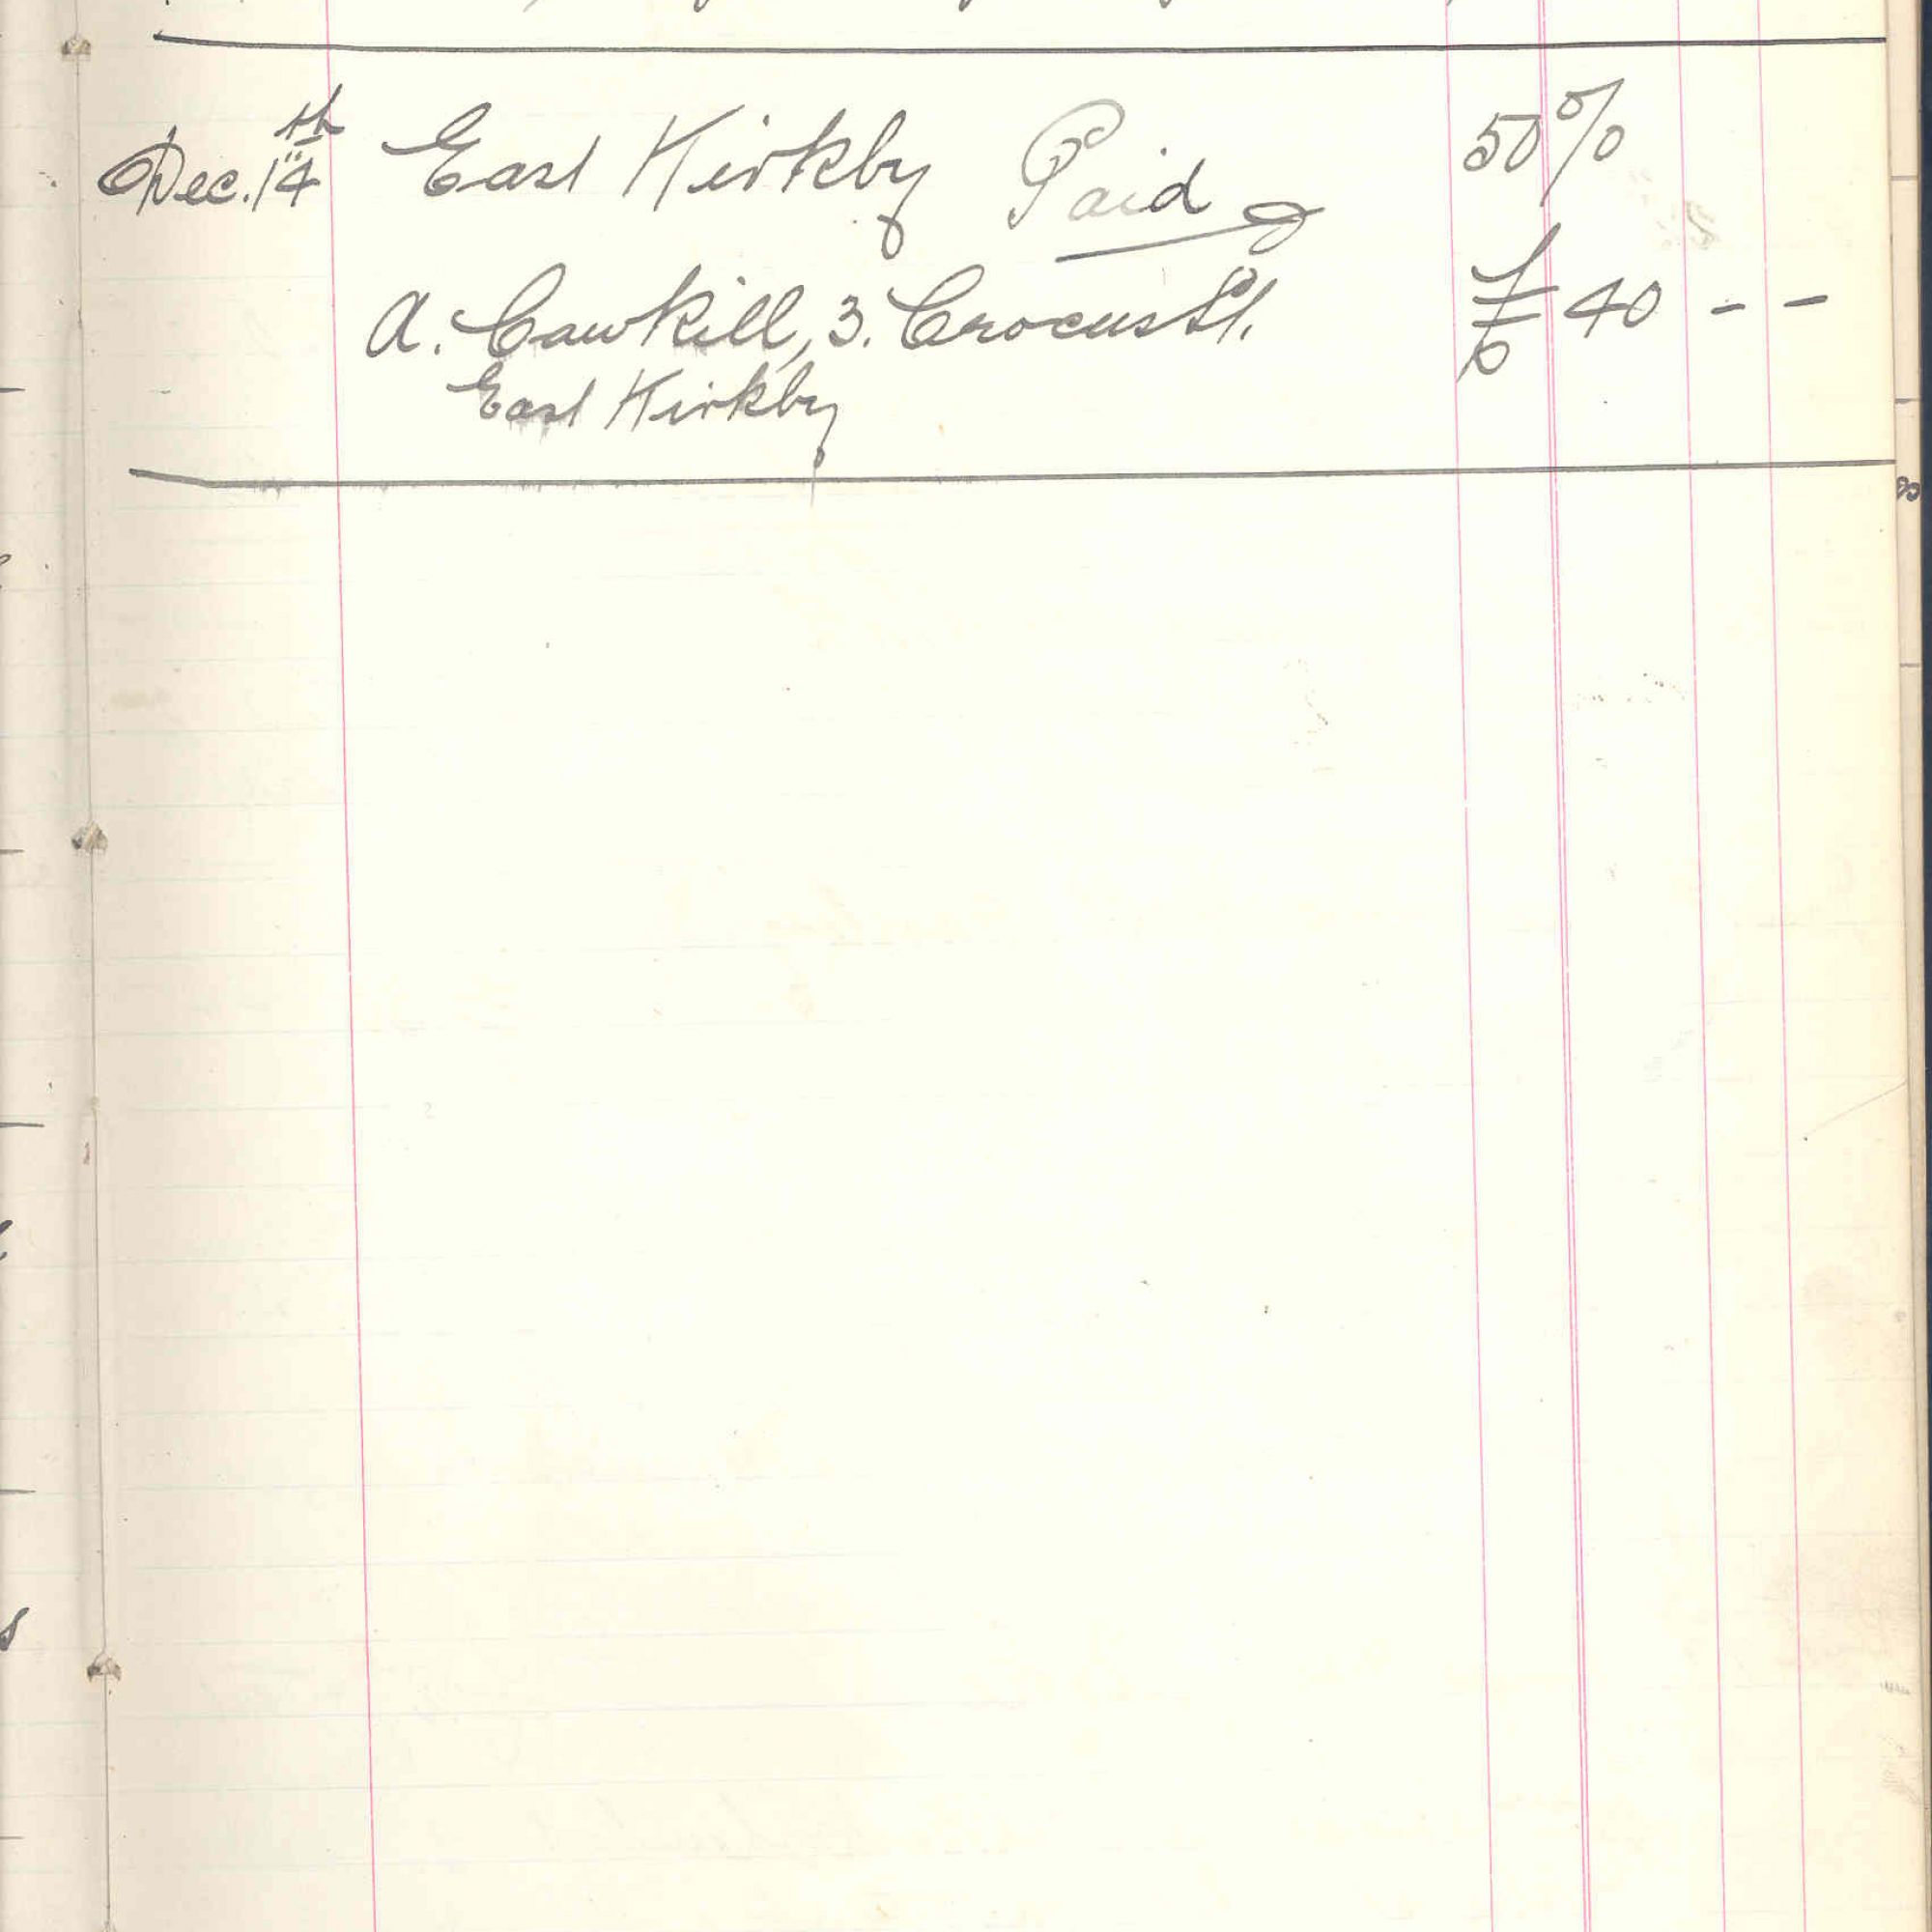 Dec. 14th East Kirkby Paid 50%
A. Cawkill, 3. Crocus St. £ 40 - -
East Kirkby